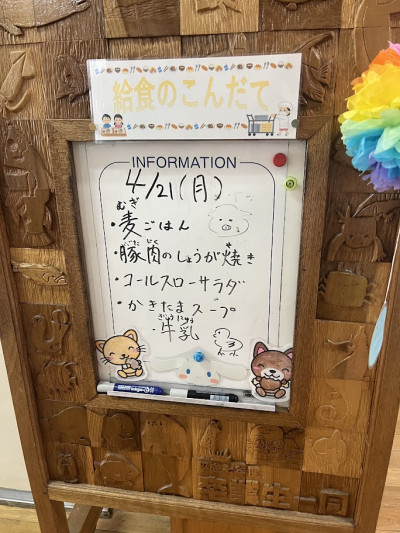 給食のこんだて
INFORMATION
4/21(月)
むぎ
・麦ごはん
ぶた にく や
・豚肉のしょうが焼き
・コールスローサラダ
・かきたまスープ
ぎゅうにゅう
・牛乳
卒業生一同